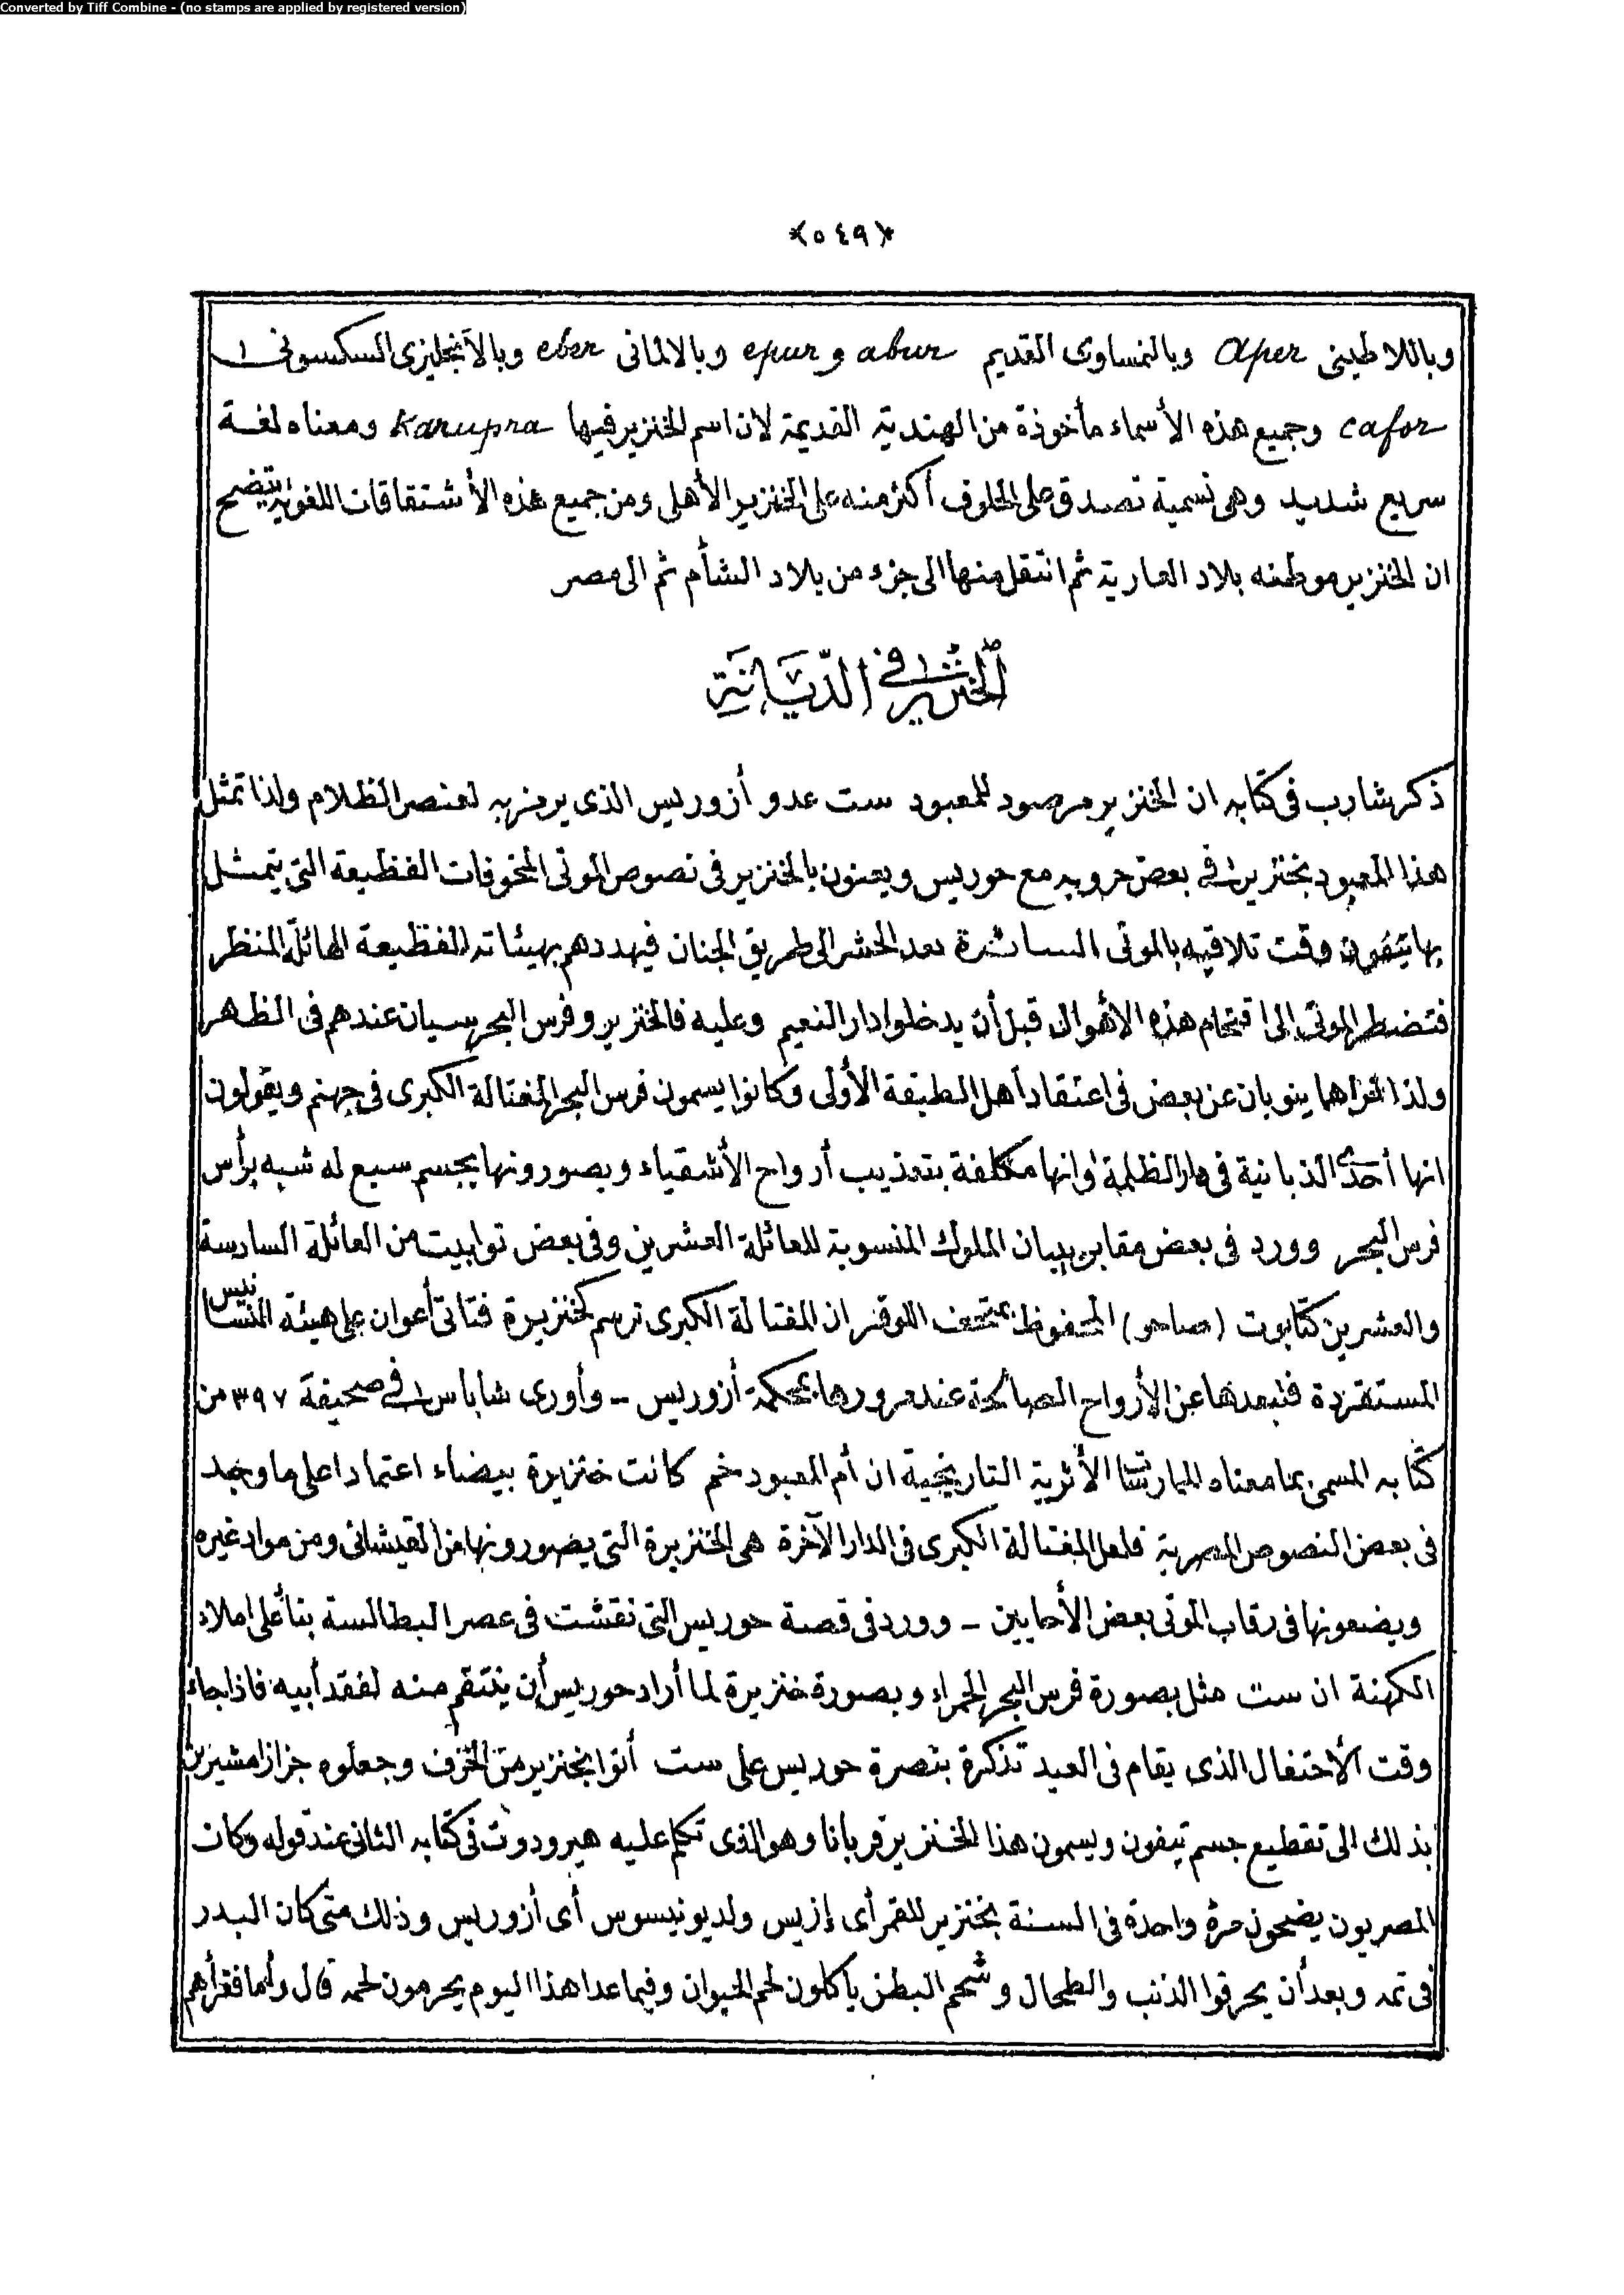 Converted by Tiff Combine - (no stamps are applied by registered version)
﴿٥٤٩﴾
وباللاطينى aper وبالنمساوى القديم abur و epur وبالالمانى eber وبالأنجليزى السكسونى
cafor وجميع هذه الأسماء مأخوذة من الهندية القديمة لان اسم الخنزير فيها Karupra ومعناه لغة
سريع شديد وهى تسمية تصدق على الحلوف أكثر منه على الخنزير الأهلى ومن جميع هذه الأشتقاقات اللغوية يتضح
ان الخنزير موطنه بلاد العارية ثم انتقل منها الى جزء من بلاد الشأم ثم الى مصر
الخنزير فى الديانة
ذكر شارب فى كتابه ان الخنزير مرصود للمعبود ست عدو أزوريس الذى يرمز به لعنصر الظلام ولذا تمثل
هذا المعبود بخنزير فى بعض حروبه مع حوريس ويعنون بالخنزير فى نصوص الموتى المخوفات الفظيعة التى يتمثل
بها تيفون وقت تلاقيه بالموتى السائرة بعد الحشر الى طريق الجنان فيهددهم بهيئاته الفظيعة الهائلة المنظر
فتضطر الموتى الى اقتحام هذه الأهوال قبل أن يدخلوا دار النعيم وعليه فالخنزير وفرس البحر سيان عندهم فى الظهر
ولذا تراهما ينوبان عن بعض فى اعتقاد أهل الطبقة الأولى وكانوا يسمون فرس البحر المغتالة الكبرى فى جهنم ويقولون
انها أحدى الذبانية فى دار الظلمة وانها مكلفة بتعذيب أرواح الأشقياء ويصورونها بجسم سبع له شبه برأس
فرس البحر وورد فى بعض مقابر بيبان الملوك المنسوبة للعائلة العشرين وفى بعض توابيت من العائلة السادسة
والعشرين كتابوت (صاحو) المحفوظ بمتحف اللوفر ان المغتالة الكبرى ترسم كخنزيرة فتاتى أعوان على هيئة النسانيس
المستقردة فتبعدها عن الأرواح الصالحة عند مرورها بمحكمة أزوريس - وأورى شاباس فى صحيفة ٣٩٧ من
كتابه المسمى بما معناه المبارتات الأثرية التاريخية ان أم المعبود خم كانت خنزيرة بيضاء اعتمادا على ما وجد
فى بعض النصوص المصرية فلعل المغتالة الكبرى فى الدار الآخرة هى الخنزيرة التى يصورونها من القيشانى ومن مواد غيره
ويضعونها فى رقاب الموتى بعض الأحايين - وورد فى قصة حوريس التى نقشت فى عصر البطالسة بناأ على املاء
الكهنة ان ست مثل بصورة فرس البحر الحمراء وبصورة خنزيرة لما أراد حوريس أن ينتقم منه لفقد أبيه فاذا جاء
وقت الأحتفال الذى يقام فى العيد تذكرة بنصرة حوريس على ست أتوا بخنزير من الخزف وجعلوه جزازا مشيرين
بذلك الى تقطيع جسم تيفون ويسمون هذا الخنزير قربانا وهو الذى تكلم عليه هيرودوت فى كتابه الثانى عند قوله وكان
المصريون يضحون مرة واحدة فى السنة بخنزير للقمر أى إزيس ولديونيسوس أى أزوريس وذلك متى كان البدر
فى تمه وبعد أن يحرقوا الذنب والطحال وشحم البطن يأكلون لحم الحيوان وفيما عدا هذا اليوم يحرمون لحمه قال وأما فقرأهم